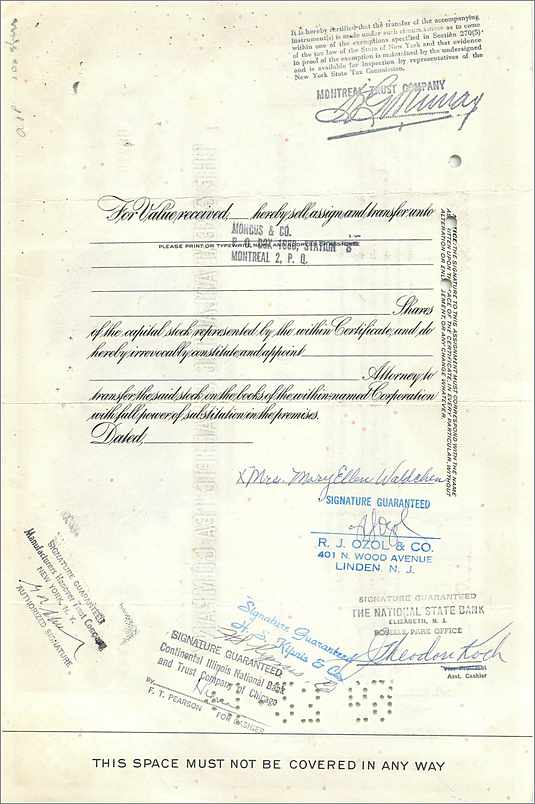 It is hereby certified that the transfer of the accompanying
instrument(s) is made under such circumstances as to come
within one of the exemptions specified in Section 270(5)
of the tax law of the State of New York and that evidence
in proof of the exemption is maintained by the undersigned
and is available for inspection by representatives of the
New York State Tax Commission.
MONTREAL TRUST COMPANY
For Value received, hereby sell, assign and transfer unto
MORGUS & CO.
PLEASE PRINT OR TYPEWRITE NAME AND ADDRESS OF ASSIGNEE
P. O. BOX 1888, STATION B
MONTREAL 2, P. Q.
Shares
of the capital stock represented by the within Certificate, and do
hereby irrevocably constitute and appoint
Attorney to
transfer the said stock on the books of the within-named Corporation
with full power of substitution in the premises.
Dated,
NOTICE: THE SIGNATURE TO THIS ASSIGNMENT MUST CORRESPOND WITH THE NAME
AS WRITTEN UPON THE FACE OF THE CERTIFICATE, IN EVERY PARTICULAR, WITHOUT
ALTERATION OR ENLARGEMENT, OR ANY CHANGE WHATEVER.
X Mrs. Mary Ellen Waldchen
SIGNATURE GUARANTEED
R. J. OZOL & CO.
401 N. WOOD AVENUE
LINDEN, N. J.
SIGNATURE GUARANTEED
Manufacturers Hanover Trust Company
NEW YORK, N. Y.
AUTHORIZED SIGNATURE
Signature Guaranteed
H. S. Kipnis & Co.
SIGNATURE GUARANTEED
THE NATIONAL STATE BANK
ELIZABETH, N. J.
ROSELLE PARK OFFICE
Theodore Koch
Vice President
Asst. Cashier
SIGNATURE GUARANTEED
Continental Illinois National Bank
and Trust Company of Chicago
BY
F. T. PEARSON FOR CASHIER
THIS SPACE MUST NOT BE COVERED IN ANY WAY